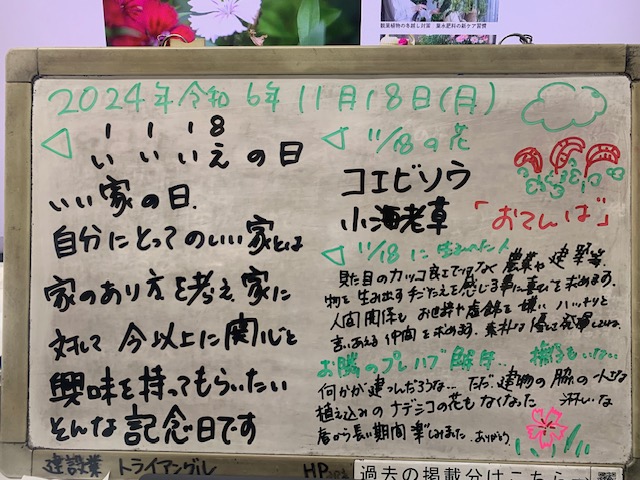 観葉植物の冬越し対策 薬水肥料の新ケア習慣
2024年令和6年11月18日(月)
1 1 1 8
いいいえの日
いい家の日.
自分にとってのいい家とは
家のあり方を考え、家に
対して今以上に関心と
興味を持ってもらいたい
そんな記念日です
11/18の花
コエビソウ
小海老草
「おてんば」
11/18に生まれた人
見た目のカッコ良さでなく農業や建築等.
物を生み出す手ごたえを感じる事に喜びを求めます.
人間関係も お世辞や虚飾を嫌い ハッキリと
言いあえる仲間を求めます.
お隣のプレハブ解体…
何かが建つんだろうな… ただ、建物の脇の
植え込みのナデシコの花もなくなった
春から長い期間楽しみました ありがとう
建設業 トライアングル
HP
過去の掲載分はこちら→